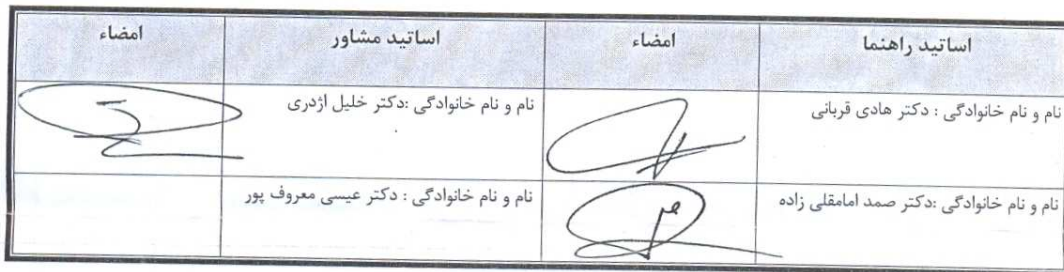 اساتید راهنما
امضاء
اساتید مشاور
امضاء
نام و نام خانوادگی : دکتر هادی قربانی
نام و نام خانوادگی :دکتر خلیل اژدری
نام و نام خانوادگی :دکتر صمد امامقلی زاده
نام و نام خانوادگی : دکتر عیسی معروف پور